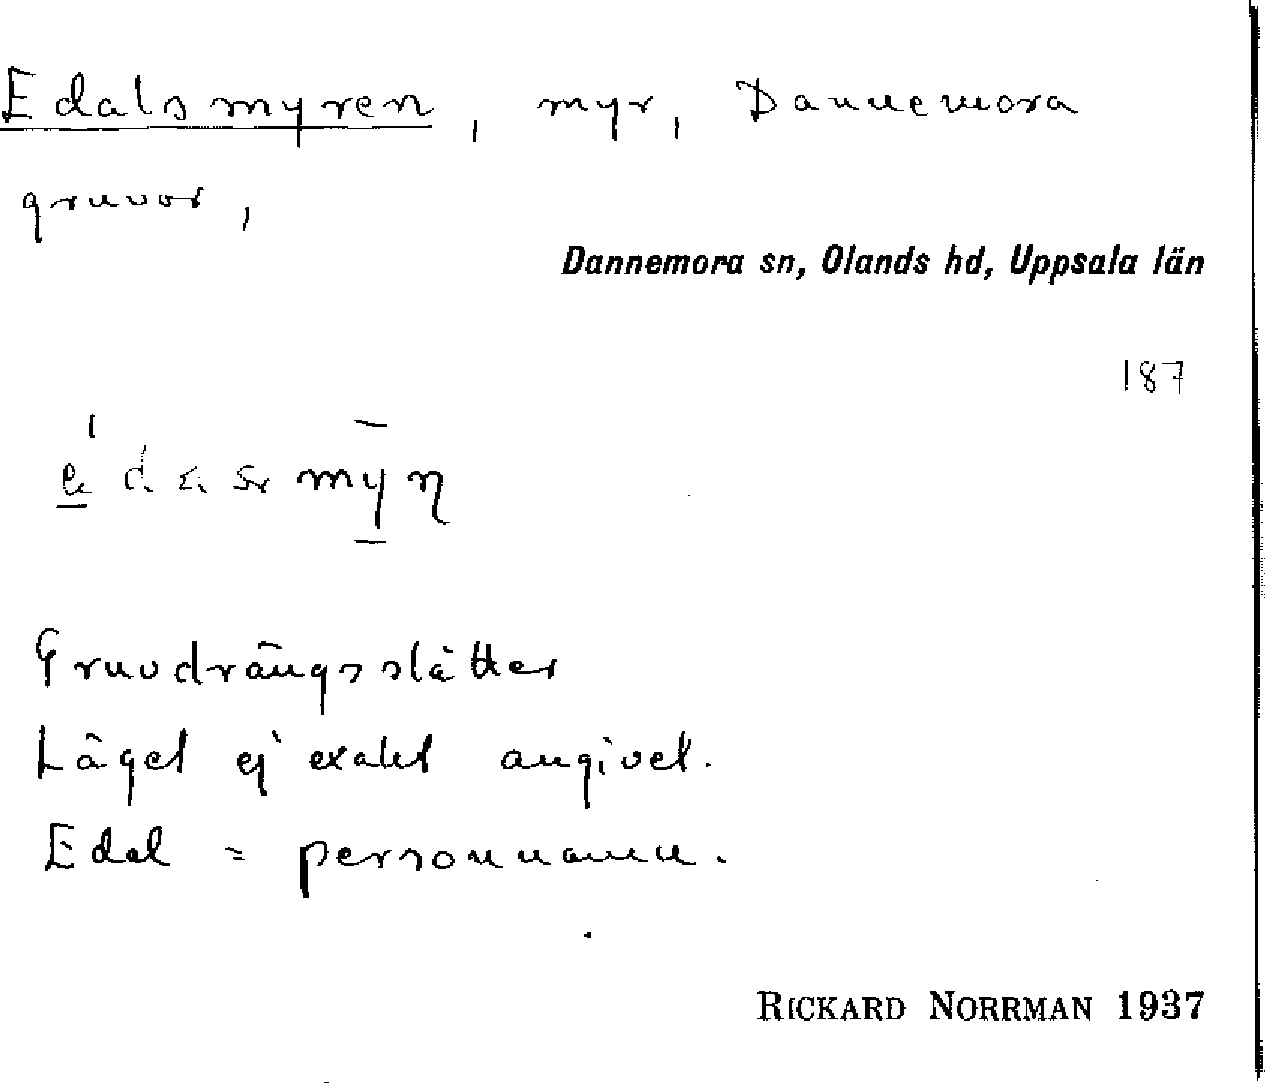 Edalsmyren, myr, Dannemora
gruvor,
Dannemora sn, Olands hd, Uppsala län
187
Gruvdrängsslåtter
Läget ej exakt angivet.
Edal = personnamn.
RICKARD NORRMAN 1937